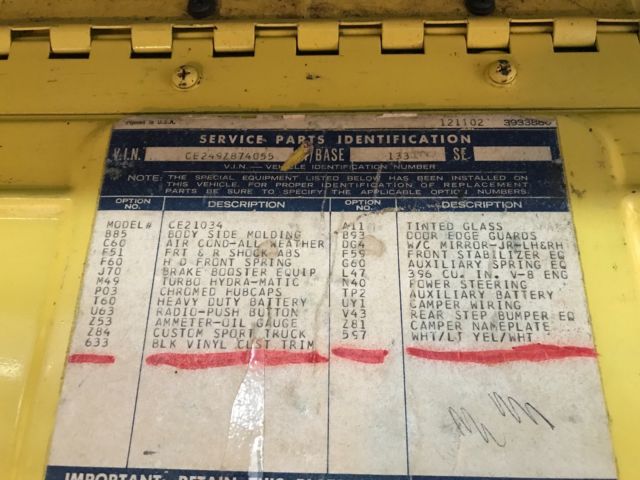 121102 3933886
SERVICE PARTS IDENTIFICATION
V.I.N. CE249Z874055 W/BASE 133 SE.
V.I.N.—VEHICLE IDENTIFICATION NUMBER
NOTE: THE SPECIAL EQUIPMENT LISTED BELOW HAS BEEN INSTALLED ON
THIS VEHICLE. FOR PROPER IDENTIFICATION OF REPLACEMENT
PARTS BE SURE TO SPECIFY THE APPLICABLE OPTION NUMBERS.
OPTION NO. DESCRIPTION OPTION NO. DESCRIPTION
MODEL# CE21034 A11 TINTED GLASS
B85 BODY SIDE MOLDING B93 DOOR EDGE GUARDS
C60 AIR COND-ALL WEATHER DG4 W/C MIRROR-JR-LH&RH
F51 FRT & R SHOCK ABS F59 FRONT STABILIZER EQ
F60 H D FRONT SPRING G60 AUXILIARY SPRING EQ
J70 BRAKE BOOSTER EQUIP L47 396 CU. IN. V-8 ENG
M49 TURBO HYDRA-MATIC N40 POWER STEERING
P03 CHROMED HUBCAPS TP2 AUXILIARY BATTERY
T60 HEAVY DUTY BATTERY UY1 CAMPER WIRING
U63 RADIO-PUSH BUTTON V43 REAR STEP BUMPER EQ
Z53 AMMETER-OIL GAUGE Z81 CAMPER NAMEPLATE
Z84 CUSTOM SPORT TRUCK 557 WHT/LT YEL/WHT
633 BLK VINYL CUST TRIM
IMPORTANT: RETAIN THIS